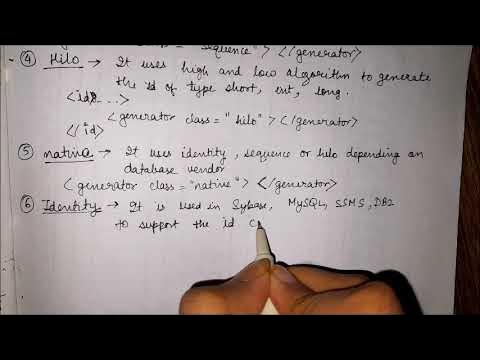 class = "sequence"> </generator>
④ Hilo → It uses high and low algorithm to generate
the id of type short, int, long.
<id ...>
<generator class = "hilo"> </generator>
</id>
⑤ native → It uses identity, sequence or hilo depending on
database vendor
<generator class = "native"> </generator>
⑥ Identity → It is used in Sybase, MySQL, SSMS, DB2
to support the id c